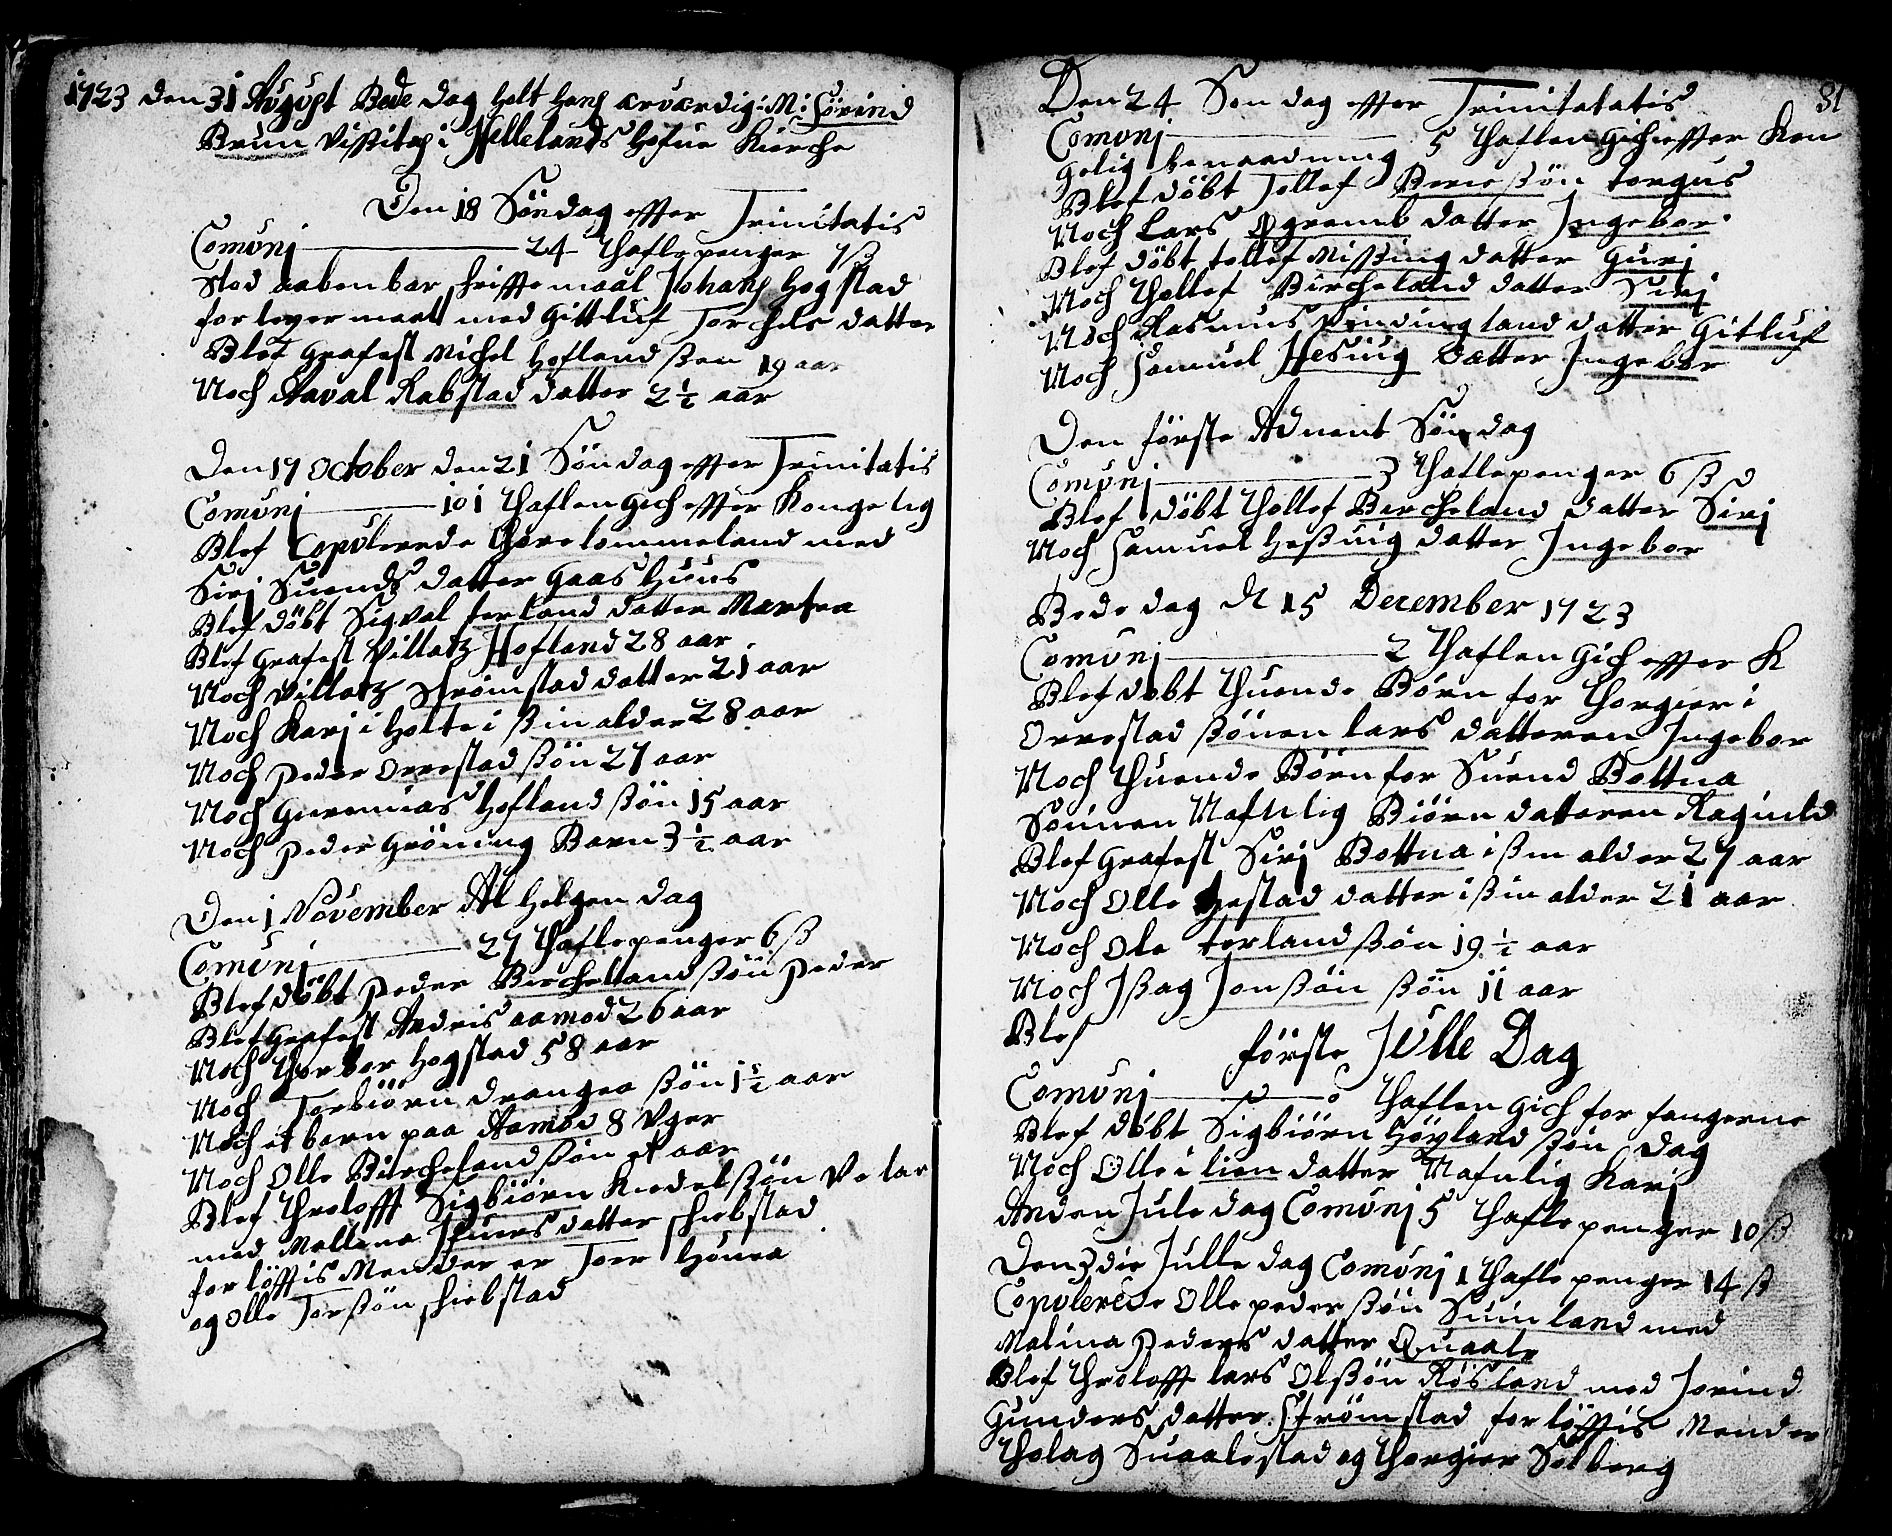 1723 den 31 Augußt Bede dag holt hanß ærværdig: M: Sörind
Bruun Vißitaß i Hellelands Hofue Kierche
Den 18 Söndag effter Trinitatis
Comunj 24 thaflepenger 7 ß
stod aabenbar skrifftemaal Johanß Hogstad
for leyermaal med Gittluf Torchels datter
Blef Grafest Michel Hofland ßøn 19 aar
Noch Aaval Rabstad datter 2 ½ aar
Den 17 October den 21 Söndag effter Trinitatis
Comunj 101 thaflen gich effter Kongelig
Blef Copulerede thore lommeland med
Sirj Suends datter Gaashuus
Blef döbt Sigval terland datter Martra
Blef Grafest Villatz Hofland 28 aar
Noch Villatz Strömstad datter 21 aar
Noch Karj i Holte i ßin alder 28 aar
Noch Peder Orrestad ßön 27 aar
Noch Guremias Hofland ßön 15 aar
Noch Peder Gröning Barn 3 ½ aar
Den 1 November Al Helgen dag
Comunj 27 thaflepenger 6 ß
Blef döbt Peder Bircheland ßön Peder
Blef Grafest Andris aamod 26 aar
Noch thorbor Hogstad 58 aar
Noch Torbiörn drangea ßön 1 ½ aar
Noch et barn paa Aamod 8 Uger
Noch Olle Bircheland ßön et aar
Blef throlofft Sigbiörn Kiedelßön Ve lar
med Mallena Ifuers datter skiebstad
forlöfftis Mender er Toer Hönea
og Olle Torßön skiebstad
31
Den 24 Sondag effter Trinitatatis
Comunj 5 thaflen gich effter Kon
gelig benaadning
Blef döbt Tollef Bereßön torgus
Noch Lars Øgremb datter Ingebor
Blef döbt tollef Mißing datter Gurj
Noch thollef Bircheland datter Sirj
Noch Rasmus Rindingland datter Gitluf
Noch Samuel Hesuig datter Ingebor
Den förste Advent Söndag
Comunj 3 thaflepenger 6 ß d
Blef döbt thollef Bercheland datter Sirj
Noch Samuel Heßuig datter Ingebor
Bededag d 15 December 1723
Comunj 2 thaflen gich effter K
Blef döbt thuende Börn for thorgier i
Orrestad ßönen lars datteren Ingebor
Noch thuende Börn for Suend Bottna
Sönnen Nafnlig Biörn datteren Ragnild
Blef Grafest Sirj Bottna i ßin alder 27 aar
Noch Olle Hestad datter i ßin alder 21 aar
Noch Ole terland ßön 19 ½ aar
Noch Ißag Jonßön ßön 11 aar
Blef
förste Julle Dag
Comunj 0 thaflen gich for fangerne
Blef döbt Sigbiörn Höyland ßön Dag
Noch Olle i lien datter Nafnlig Karj
Anden Jule dag Comunj 5 thaflepenger 10 ß
Den 3die Julle dag Comunj 1 thaflepenger 14 ß
Copulerede Olle pederßön Suinland med
Malina Peders datter Quaale
Blef throlofft lars Olßön Rösland med Jorind
Gunders datter Strömstad forlöfftis Mender
tholag Suaalestad og thorgier Solberg